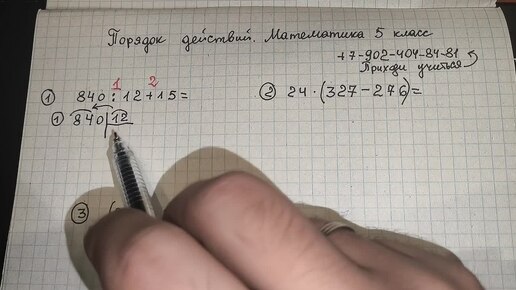 Порядок действий. Математика 5 класс
+7-902-404-84-81
Приходи учиться
1 2
① 840 : 12 + 15 =
② 24 · (327 - 276) =
① 840 | 12
③ (